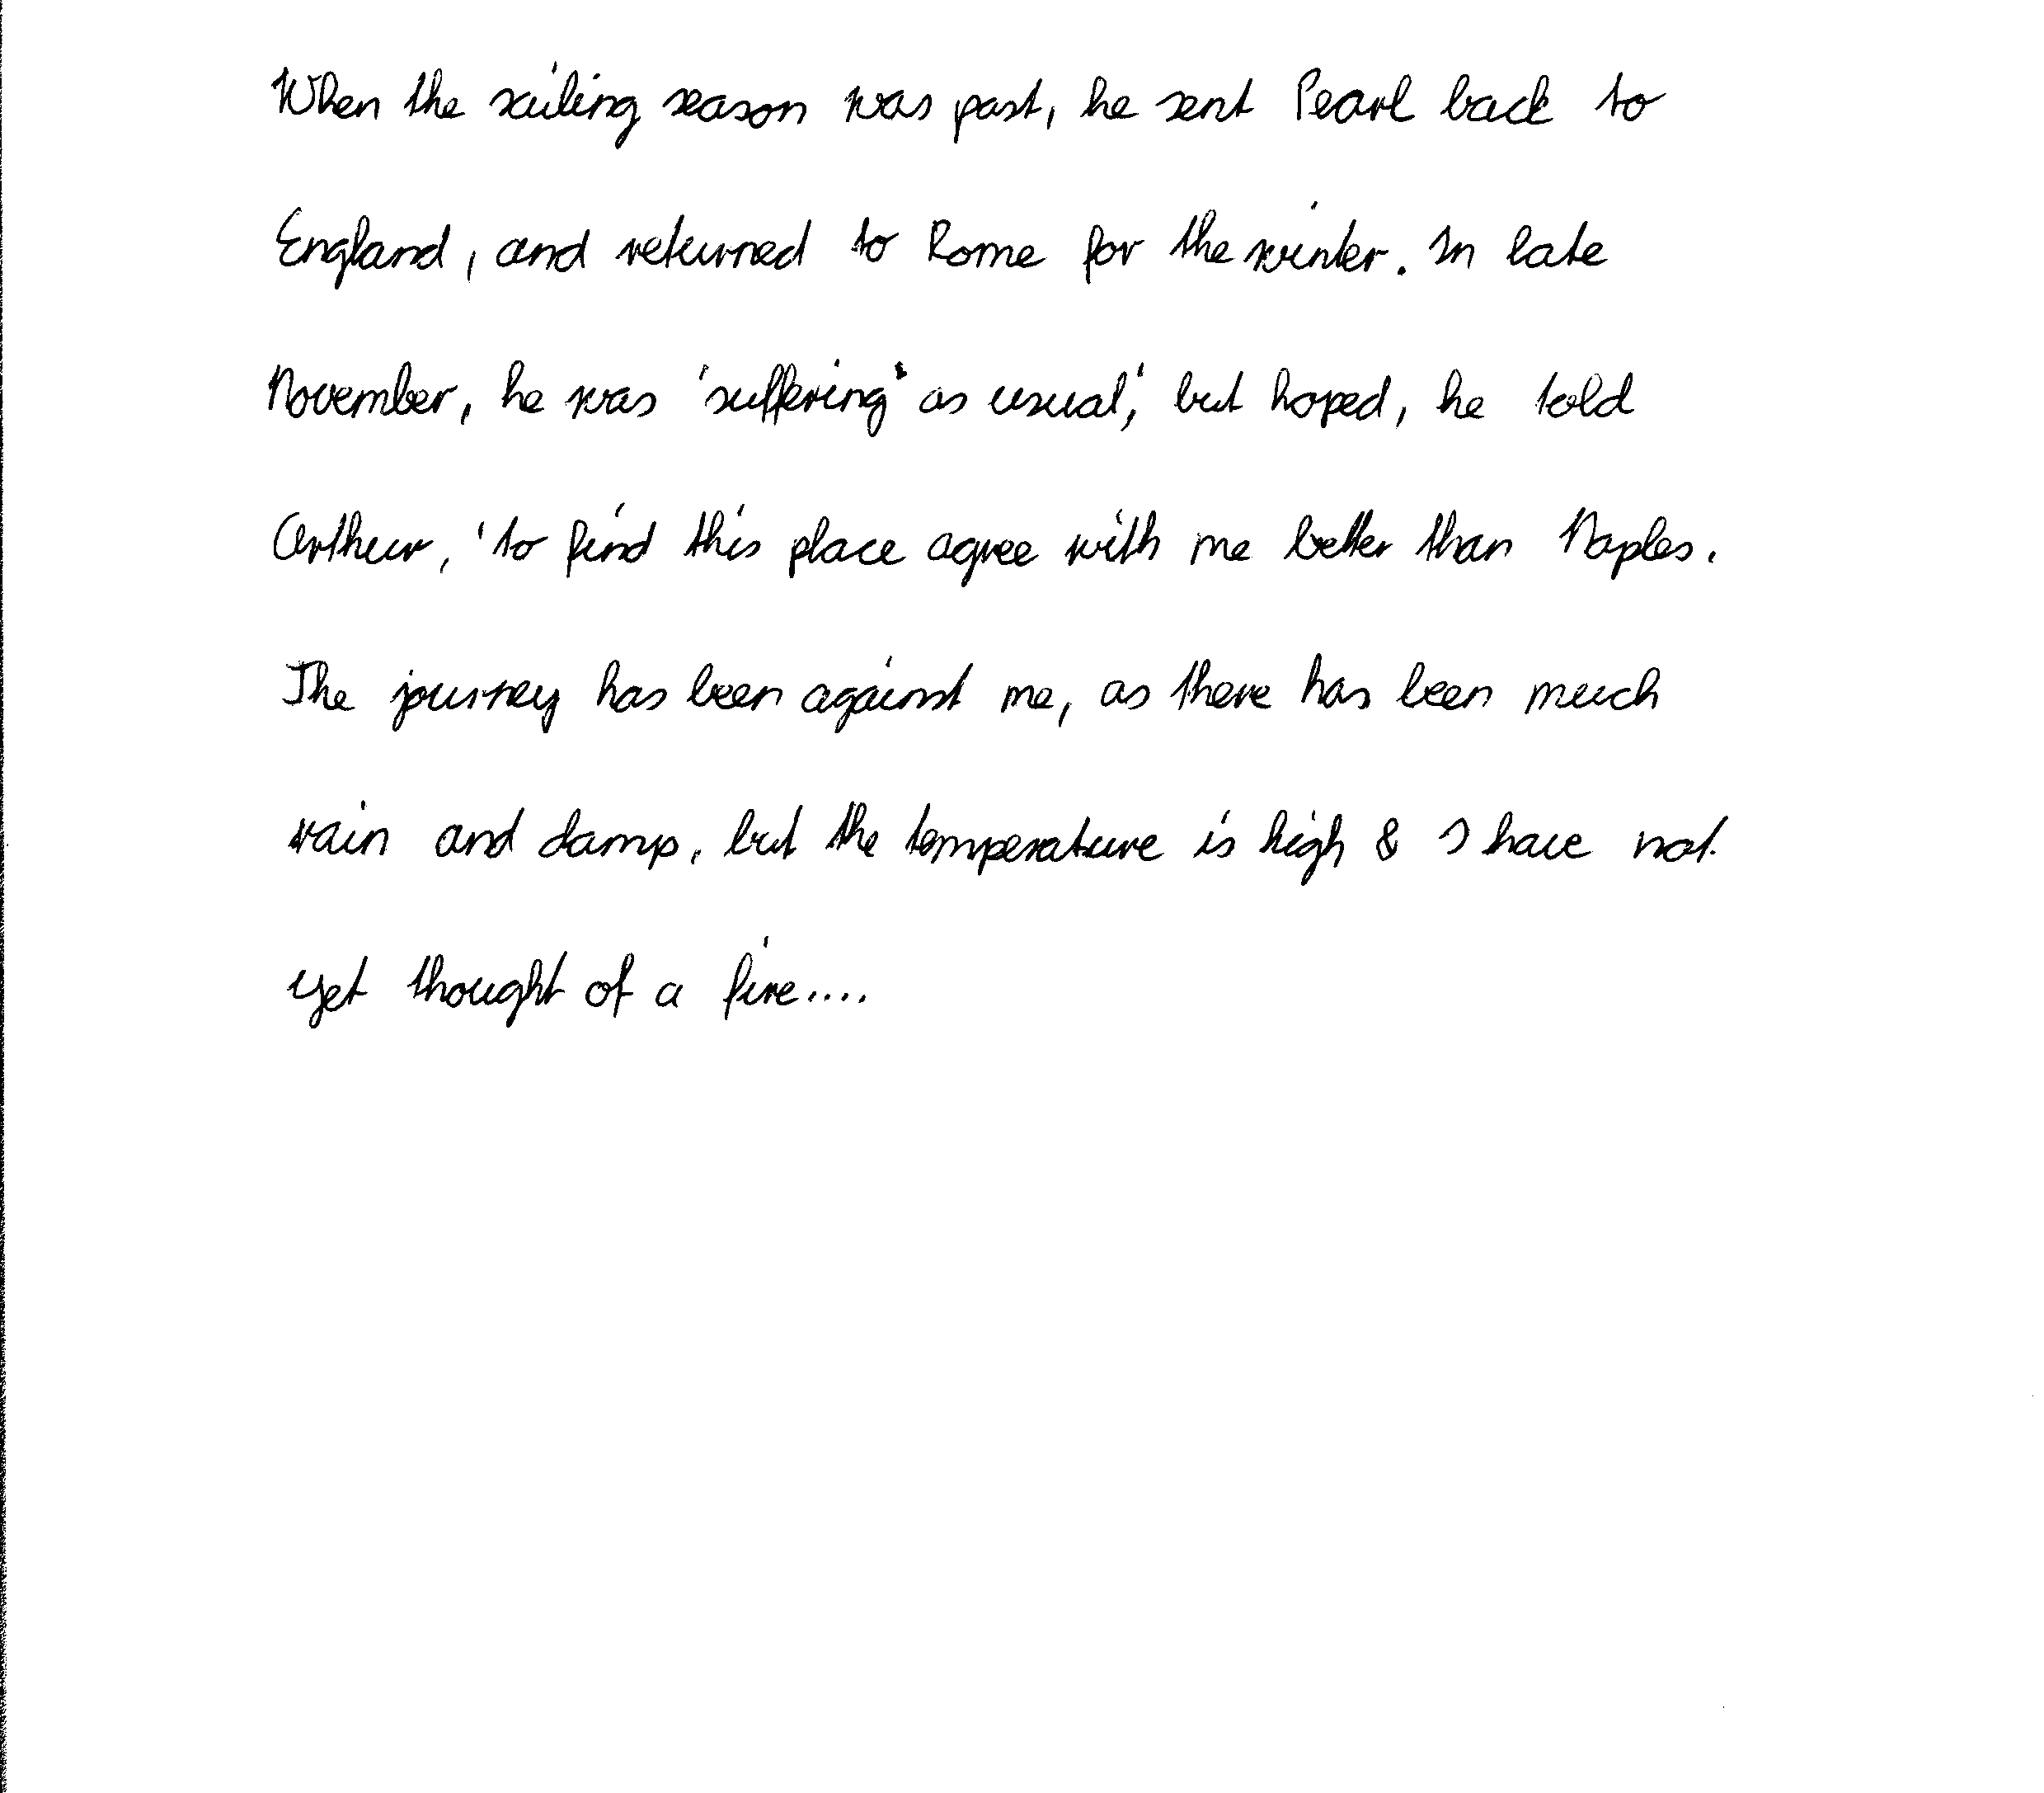 When the sailing season was past, he sent Pearl back to
England, and returned to Rome for the winter. In late
November, he was 'suffering' as usual,' but hoped, he told
Arthur, 'to find this place agree with me better than Naples.
The journey has been against me, as there has been much
rain and damp, but the temperature is high & I have not
yet thought of a fire....